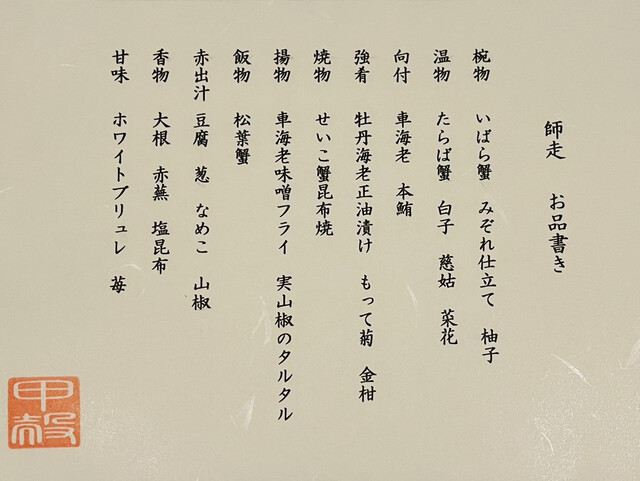 師走　お品書き
椀物　いばら蟹　みぞれ仕立て　柚子
温物　たらば蟹　白子　慈姑　菜花
向付　車海老　本鮪
強肴　牡丹海老正油漬け　もって菊　金柑
焼物　せいこ蟹昆布焼
揚物　車海老味噌フライ　実山椒のタルタル
飯物　松葉蟹
赤出汁　豆腐　葱　なめこ　山椒
香物　大根　赤蕪　塩昆布
甘味　ホワイトブリュレ　苺
甲殻